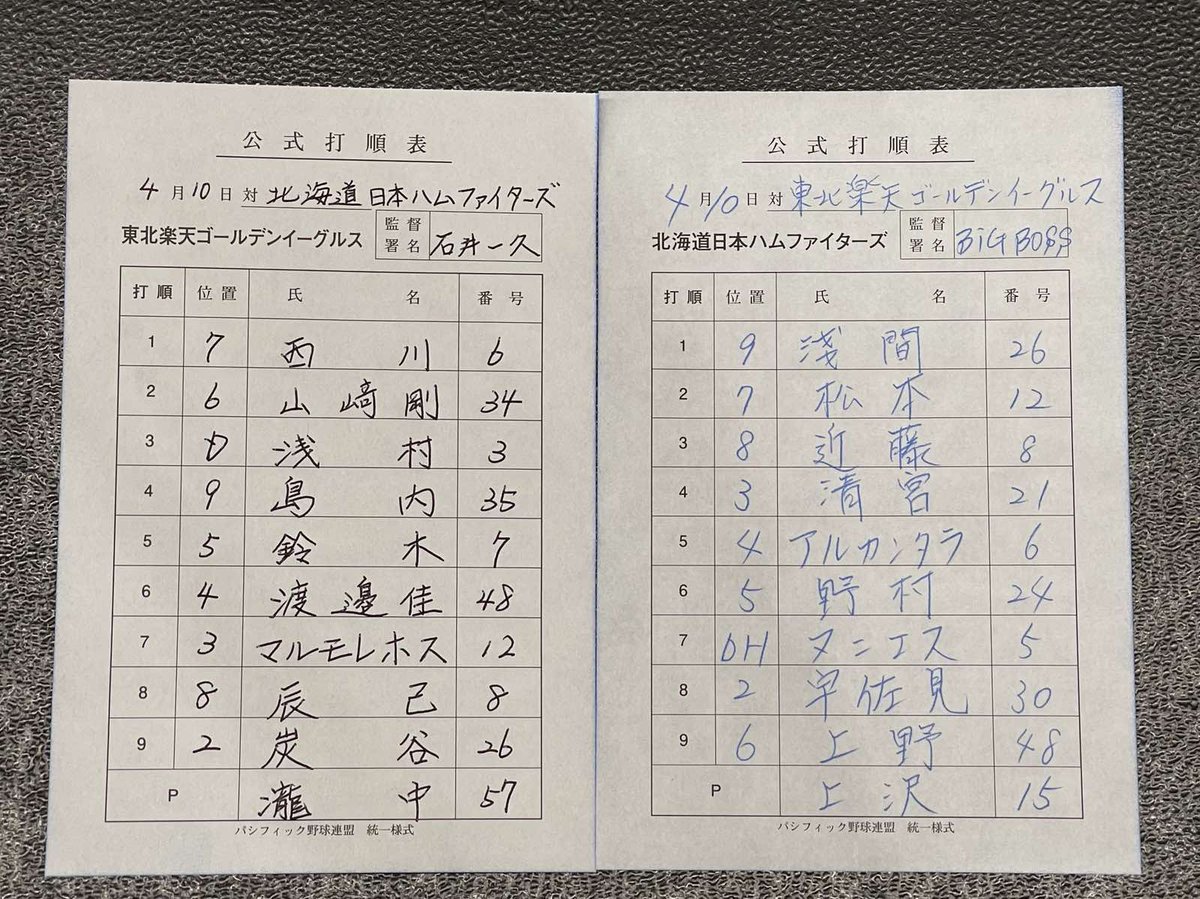 公式打順表
4月10日対 北海道日本ハムファイターズ
東北楽天ゴールデンイーグルス 監督署名 石井一久
打順 位置 氏名 番号
1 7 西川 6
2 6 山﨑剛 34
3 D 浅村 3
4 9 島内 35
5 5 鈴木 7
6 4 渡邊佳 48
7 3 マルモレホス 12
8 8 辰己 8
9 2 炭谷 26
P 瀧中 57
パシフィック野球連盟 統一様式
公式打順表
4月10日対 東北楽天ゴールデンイーグルス
北海道日本ハムファイターズ 監督署名 BiGBO$$
打順 位置 氏名 番号
1 9 淺間 26
2 7 松本 12
3 8 近藤 8
4 3 清宮 21
5 4 アルカンタラ 6
6 5 野村 24
7 DH ヌニエス 5
8 2 宇佐見 30
9 6 上野 48
P 上沢 15
パシフィック野球連盟 統一様式